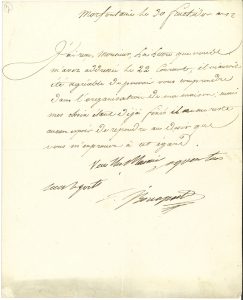 Morfontaine le 30 fructidor an 12
J'ai reçu, Monsieur, la lettre que vous
m'avez adressée le 22 courant, il m'aurait
été agréable de pouvoir vous comprendre
dans l'organisation de ma maison; mais
mes choix sont déjà faits et il ne me reste
aucun espoir de répondre au désir que
vous m'exprimez à cet égard.
Bonaparte